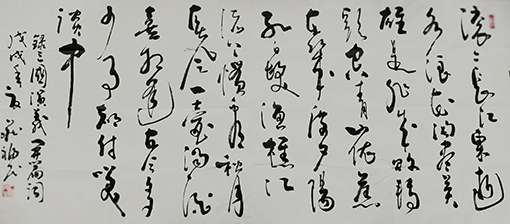 滚滚长江東逝
水浪花淘尽英
雄是非成敗轉
头空青山依舊
在几度夕陽
红白发渔樵江
渚上慣看秋月
春风一壶濁酒
喜相逢古今多
少事都付笑
谈中
錄三國演義開篇詞
戊戌年夏